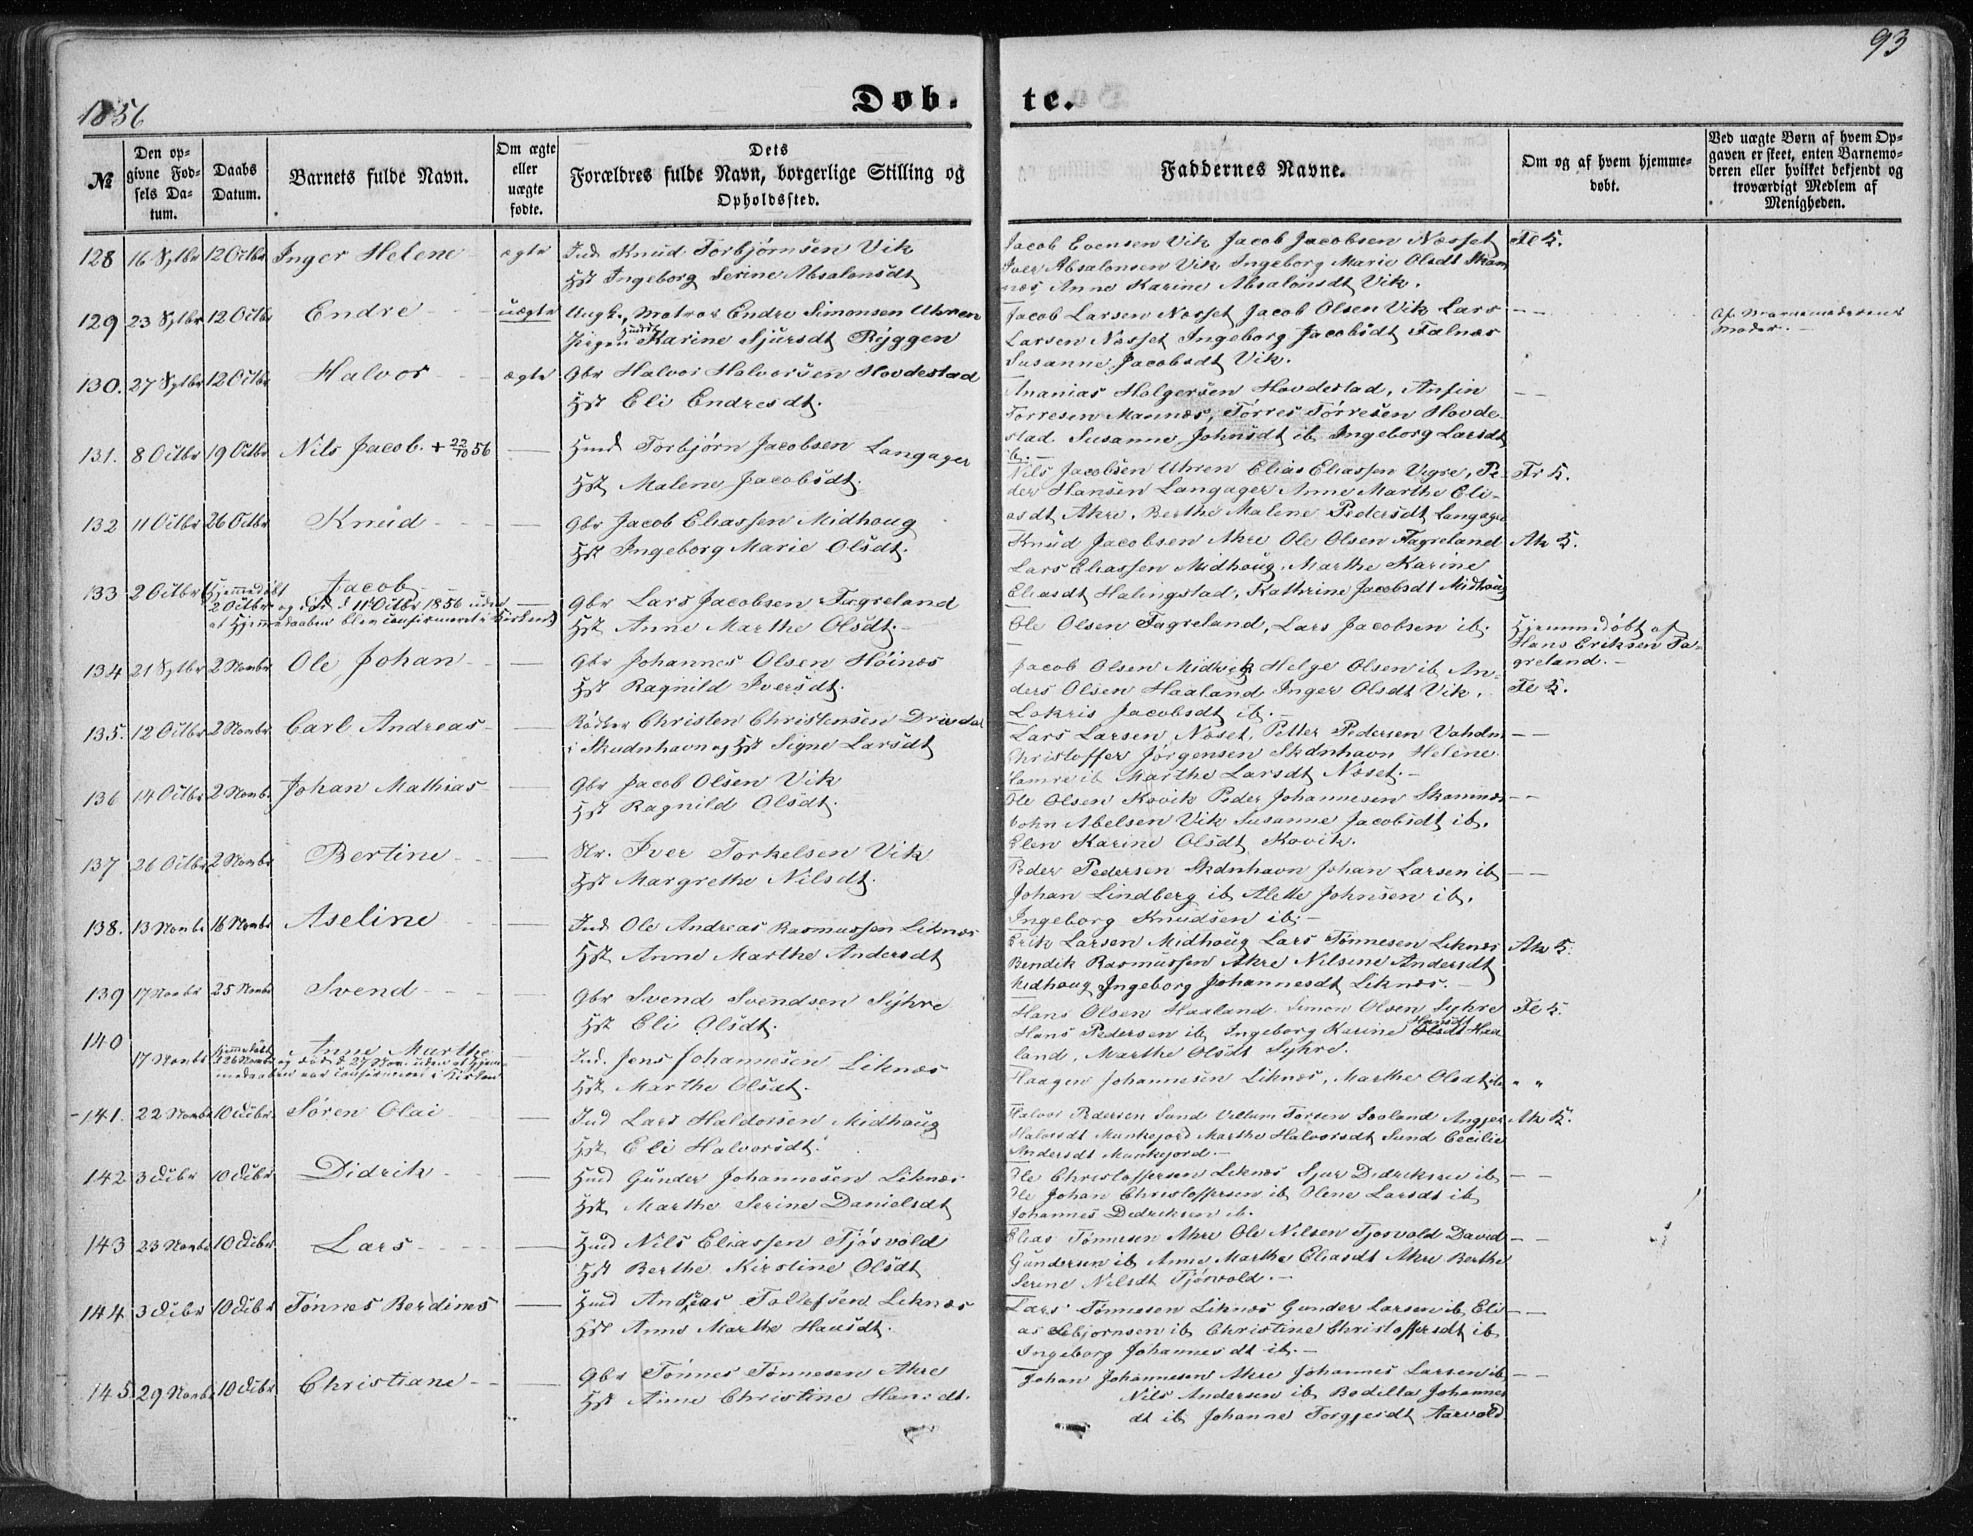 93
1856
Døb- te.
№
Den op-
givne Fød-
sels Da-
tum.
Daabs
Datum.
Barnets fulde Navn.
Om ægte
eller
uægte
fødte.
Dets
Forældres fulde Navn, borgerlige Stilling og
Opholdssted.
Faddernes Navne.
Om og af hvem hjemme-
døbt.
Ved uægte Børn af hvem Op-
gaven er skeet, enten Barnemo-
deren eller hvilket bekjendt og
troværdigt Medlem af
Menigheden.
128 16 Sptbr 12 Octbr Inger Helene ægte Ind Knud Torbjørnsen Vik
Hst Ingeborg Serine Absalonsdt
Jacob Evensen Vik Jacob Jacobsen Nøsset Fe K.
Iver Absalonsen Vik Ingeborg Marie Olsdt Skam
næs Anne Karine Absalonsdt Vik.
129 23 Sptbr 12 Octbr Endre uægte Ungk. Matros Endre Simonsen Uhren
Pigen Karine Sjursdt Ryggen
Jacob Larsen Nøsset Jacob Olsen Vik Lars — —
Larsen Nøsset Ingeborg Jacobsdt Falnæs
Susanne Jacobsdt Vik.
Af Barnemoderens
Moder. —
130. 27 Sptbr 12 Octbr Halvor ægte Gbr Halvor Halvorsen Hovdestad
Hst Eli Endresdt.
Ananias Holgersen Hovdestad, Anfin — —
Torresen Mannæs, Tørres Tørresen Hovde-
stad Susanne Johnsdt ib Ingeborg Larsdt
ib. —
131. 8 Octbr 19 Octbr Nils Jacob. + 22/10 56 — Hmd Torbjørn Jacobsen Langager
Hst Malene Jacobsdt.
Nils Jacobsen Uhren Elias Eliassen Vigre, Pe- Fr K.
der Hansen Langager Anne Marthe Eli-
asdt Akre, Berthe Malene Pedersdt Langager
132 11 Octbr 26 Octbr Knud — Gbr Jacob Eliassen Midhoug
Hst Ingeborg Marie Olsdt.
Knud Jacobsen Akre Ole Olsen Fagreland Ak K.
Lars Eliassen Midhoug, Marthe Karine
Eliasdt Halingstad, Kathrine Jacobsdt Midhoug
133 2 Octbr Hjemmedøbt Jacob
2 Octbr og død d 11 Octbr 1856 uden
at Hjemmedaaben blev confirmeret i Kirken)
— Gbr Lars Jacobsen Fagreland
Hst Anne Marthe Olsdt. —
Ole Olsen Fagreland, Lars Jacobsen ib.
—
Hjemmedøbt af
Hans Eriksen Fa-
greland. —
134 21 Sptbr 2 Novbr Ole Johan — Gbr Johannes Olsen Høinæs
Hst Ragnild Iversdt.
Jacob Olsen Midvik Helge Olsen ib An-
ders Olsen Haaland Inger Olsdt Vik, Fe K.
Lokris Jacobsdt ib. —
135. 12 Octbr 2 Novbr Carl Andreas — Bødker Christen Christensen Drivdal
i Skudnhavn og Hst Signe Larsdt
Lars Larsen Nøset, Petter Pedersen — —
Christoffer Jörgensen Skdnhavn Helene
Hamre ib Marthe Larsdt Nøset. —
136 14 Octbr 2 Novb. Johan Mathias — Gbr Jacob Olsen Vik
Hst Ragnild Olsdt.
Ole Olsen Kovik Peder Johannesen Skamnæs — —
John Abelsen Vik Susanne Jacobsdt ib,
Elen Karine Olsdt Kovik.
137 26 Octbr 2 Novbr Bertine — Str. Iver Torkelsen Vik
Hst Margrethe Nilsdt.
Peder Pedersen Skdnhavn Johan Larsen ib — —
Johan Lindberg ib Alette Johnsen ib,
Ingeborg Knudsen ib. —
138. 13 Novbr 16 Novbr Aseline — Ind Ole Andreas Rasmussen Liknæs
Hst Anne Marthe Andersdt
Erik Larsen Midhoug Lars Tønnesen Liknæs Ak K.
Bendik Rasmussen Akre Nilsine Andersdt
Midhoug Ingeborg Johannesdt Liknæs. —
139 17 Novbr 25 Novbr Svend — Gbr Svend Svendsen Syhre
Hst Eli Olsdt.
Hans Olsen Haaland Simon Olsen Syhre Fe K.
Hans Pedersen ib Ingeborg Karine Hansdt Haa
land, Marthe Olsdt Syhre.
140
17 Novbr Hjemmedøbt Anne Marthe
26 Novbr og død d 27 Nov. uden at Hjem-
medaaben var confirmeret i Kirken
Ind. Jens Johannesen Liknæs
Hst Marthe Olsdt.
Haagen Johannesen Liknæs, Marthe Olsdt ib " "
141. 22 Novbr 10 Dcbr Søren Olai — Ind Lars Haldorsen Midhoug
Hst Eli Halvorsdt.
Halvor Pedersen Sund Villum Torsen Saaland Angjer Ak K.
Halvorsdt Munkejord Marthe Halvorsdt Sund Cecilie
Andersdt Munkejord. —
142 3 Dcbr 10 Dcbr Didrik — Hmd Gunder Johannesen Liknæs
Hst Marthe Serine Danielsdt
Ole Christoffersen Liknæs Sjur Didriksen ib — —
Ole Johan Christoffersen ib Olene Larsdt ib
Johannes Didriksen ib.
143 23 Novbr 10 Dcbr Lars — Hmd Nils Eliassen Tjøsvold
Hst Berthe Kirstine Olsdt
Elias Tønnesen Akre Ole Nilsen Tjosvold David — —
Gundersen ib Anne Marthe Eliasdt Akre Berthe
Serine Nilsdt Tjösvold. —
144. 3 Dcbr 10 Dcbr Tønnes Berdines — Hmd Andreas Tollefsen Liknæs
Hst Anne Marthe Hansdt.
Lars Tønnesen Liknæs Gunder Larsen ib Eli — —
as Asbjørnsen ib Christine Christoffersdt ib
Ingeborg Johannesdt ib. —
145. 29 Novbr 10 Dcbr Christiane — Gbr Tønnes Tønnesen Akre
Hst Anne Christine Hansdt.
Johan Johannesen Akre Johannes Larsen ib — —
Nils Andersen ib Bodilla Johannes
dt ib Johanne Torgjersdt Aarvold.